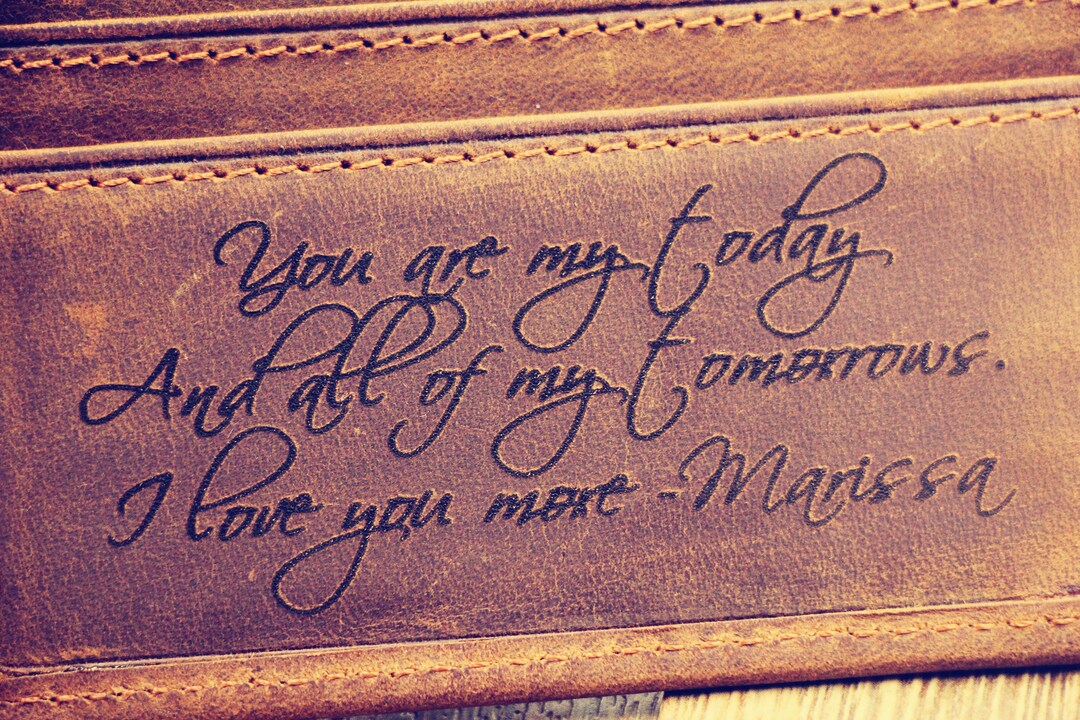 You are my today
And all of my tomorrows.
I love you more -Marissa